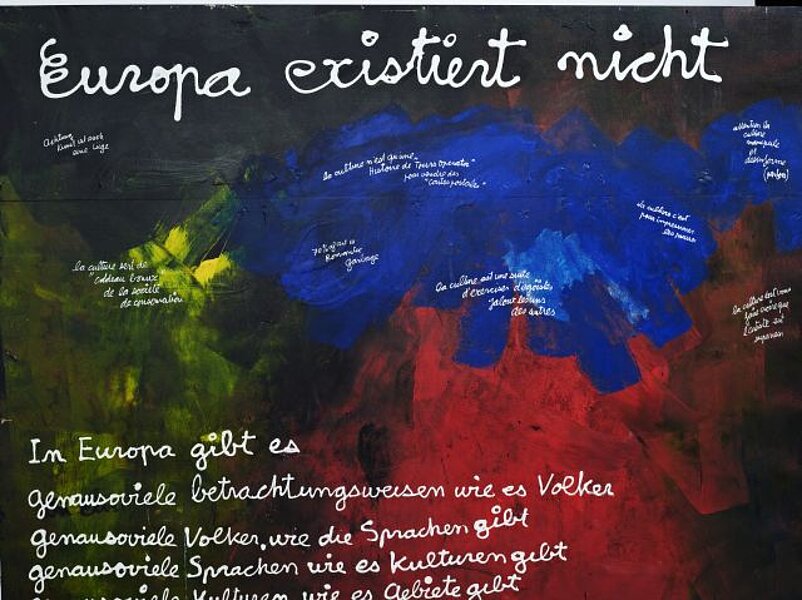 Europa existiert nicht
Achtung
Kunst ist auch
eine Lüge
la culture n'est qu'une
Histoire de "Tours Operator"
pour vendre des
"Cartes postales"
attention la
culture
manipule
et
desinforme
la culture c'est
pour impressionner
70% of art is
Romantic
garbage
la culture sert de
"cadeau
de la societé
de consomation
la culture est une suite
d'exercises d'égoistes
jaloux les uns
des autres
la culture
l'artiste est
In Europa gibt es
genausoviele betrachtungsweisen wie es Volker
genausoviele Volker, wie die Sprachen gibt
genausoviele Sprachen wie es Kulturen gibt
genausoviele Kulturen, wie es Gebiete gibt